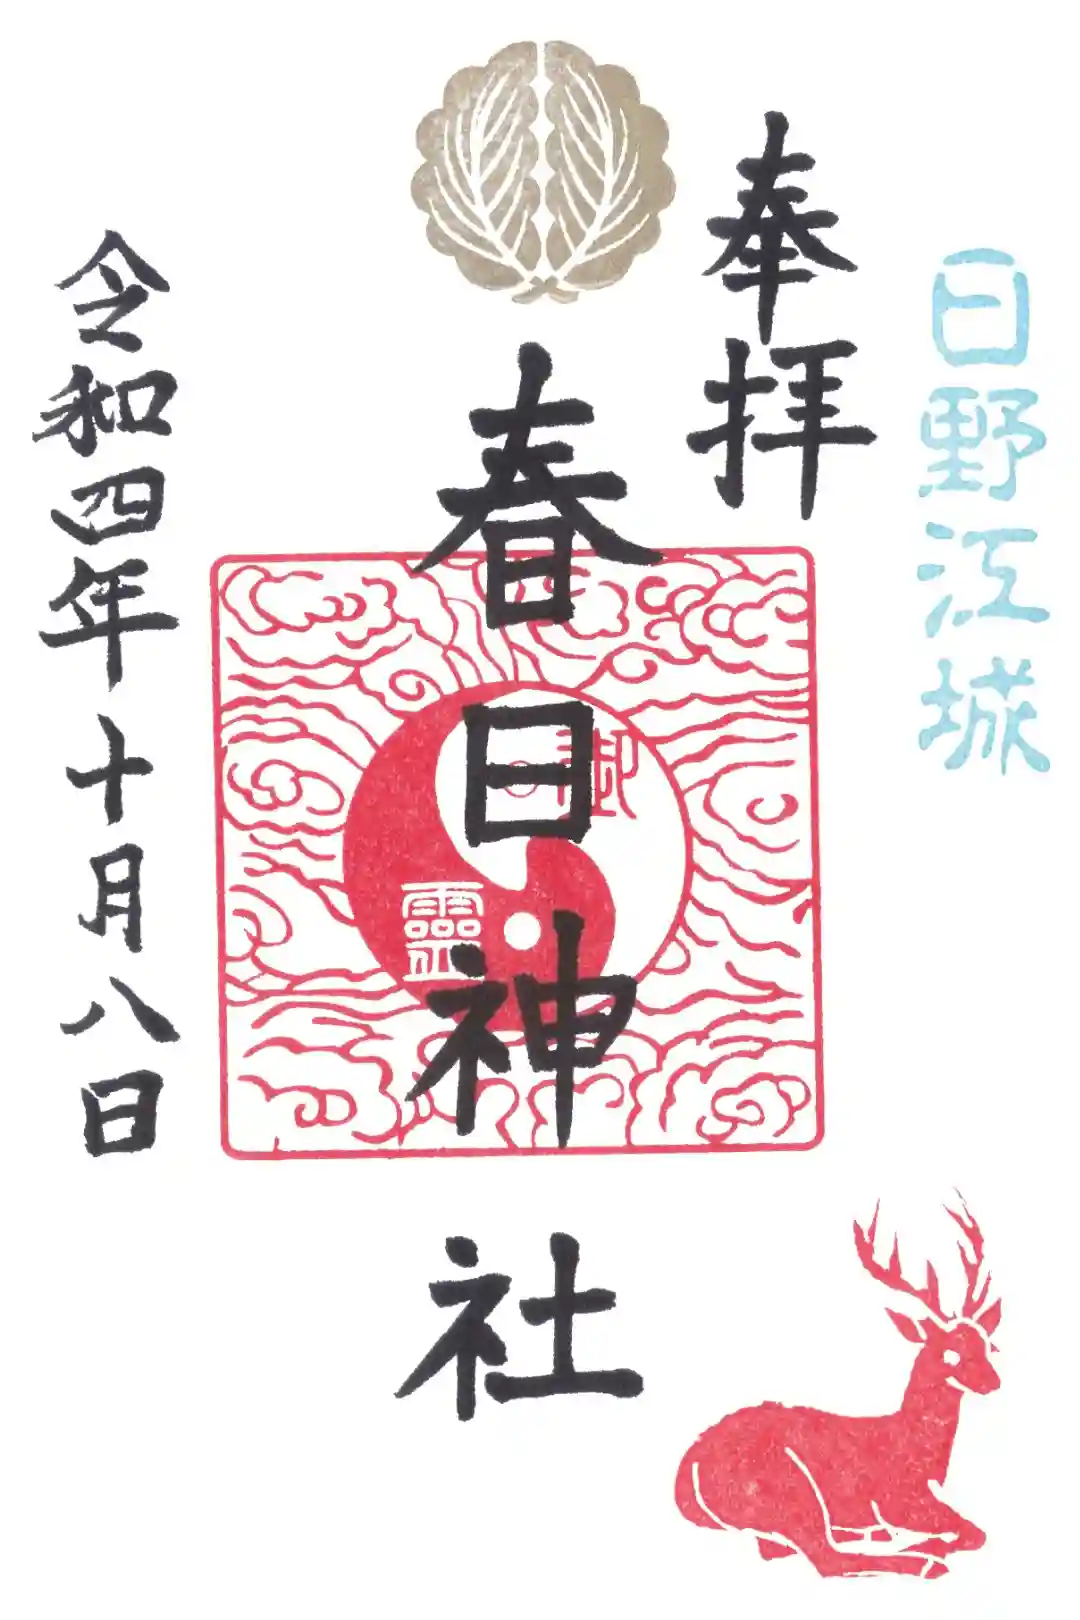 日野江城
奉拝
春日神社
御
靈
令和四年十月八日